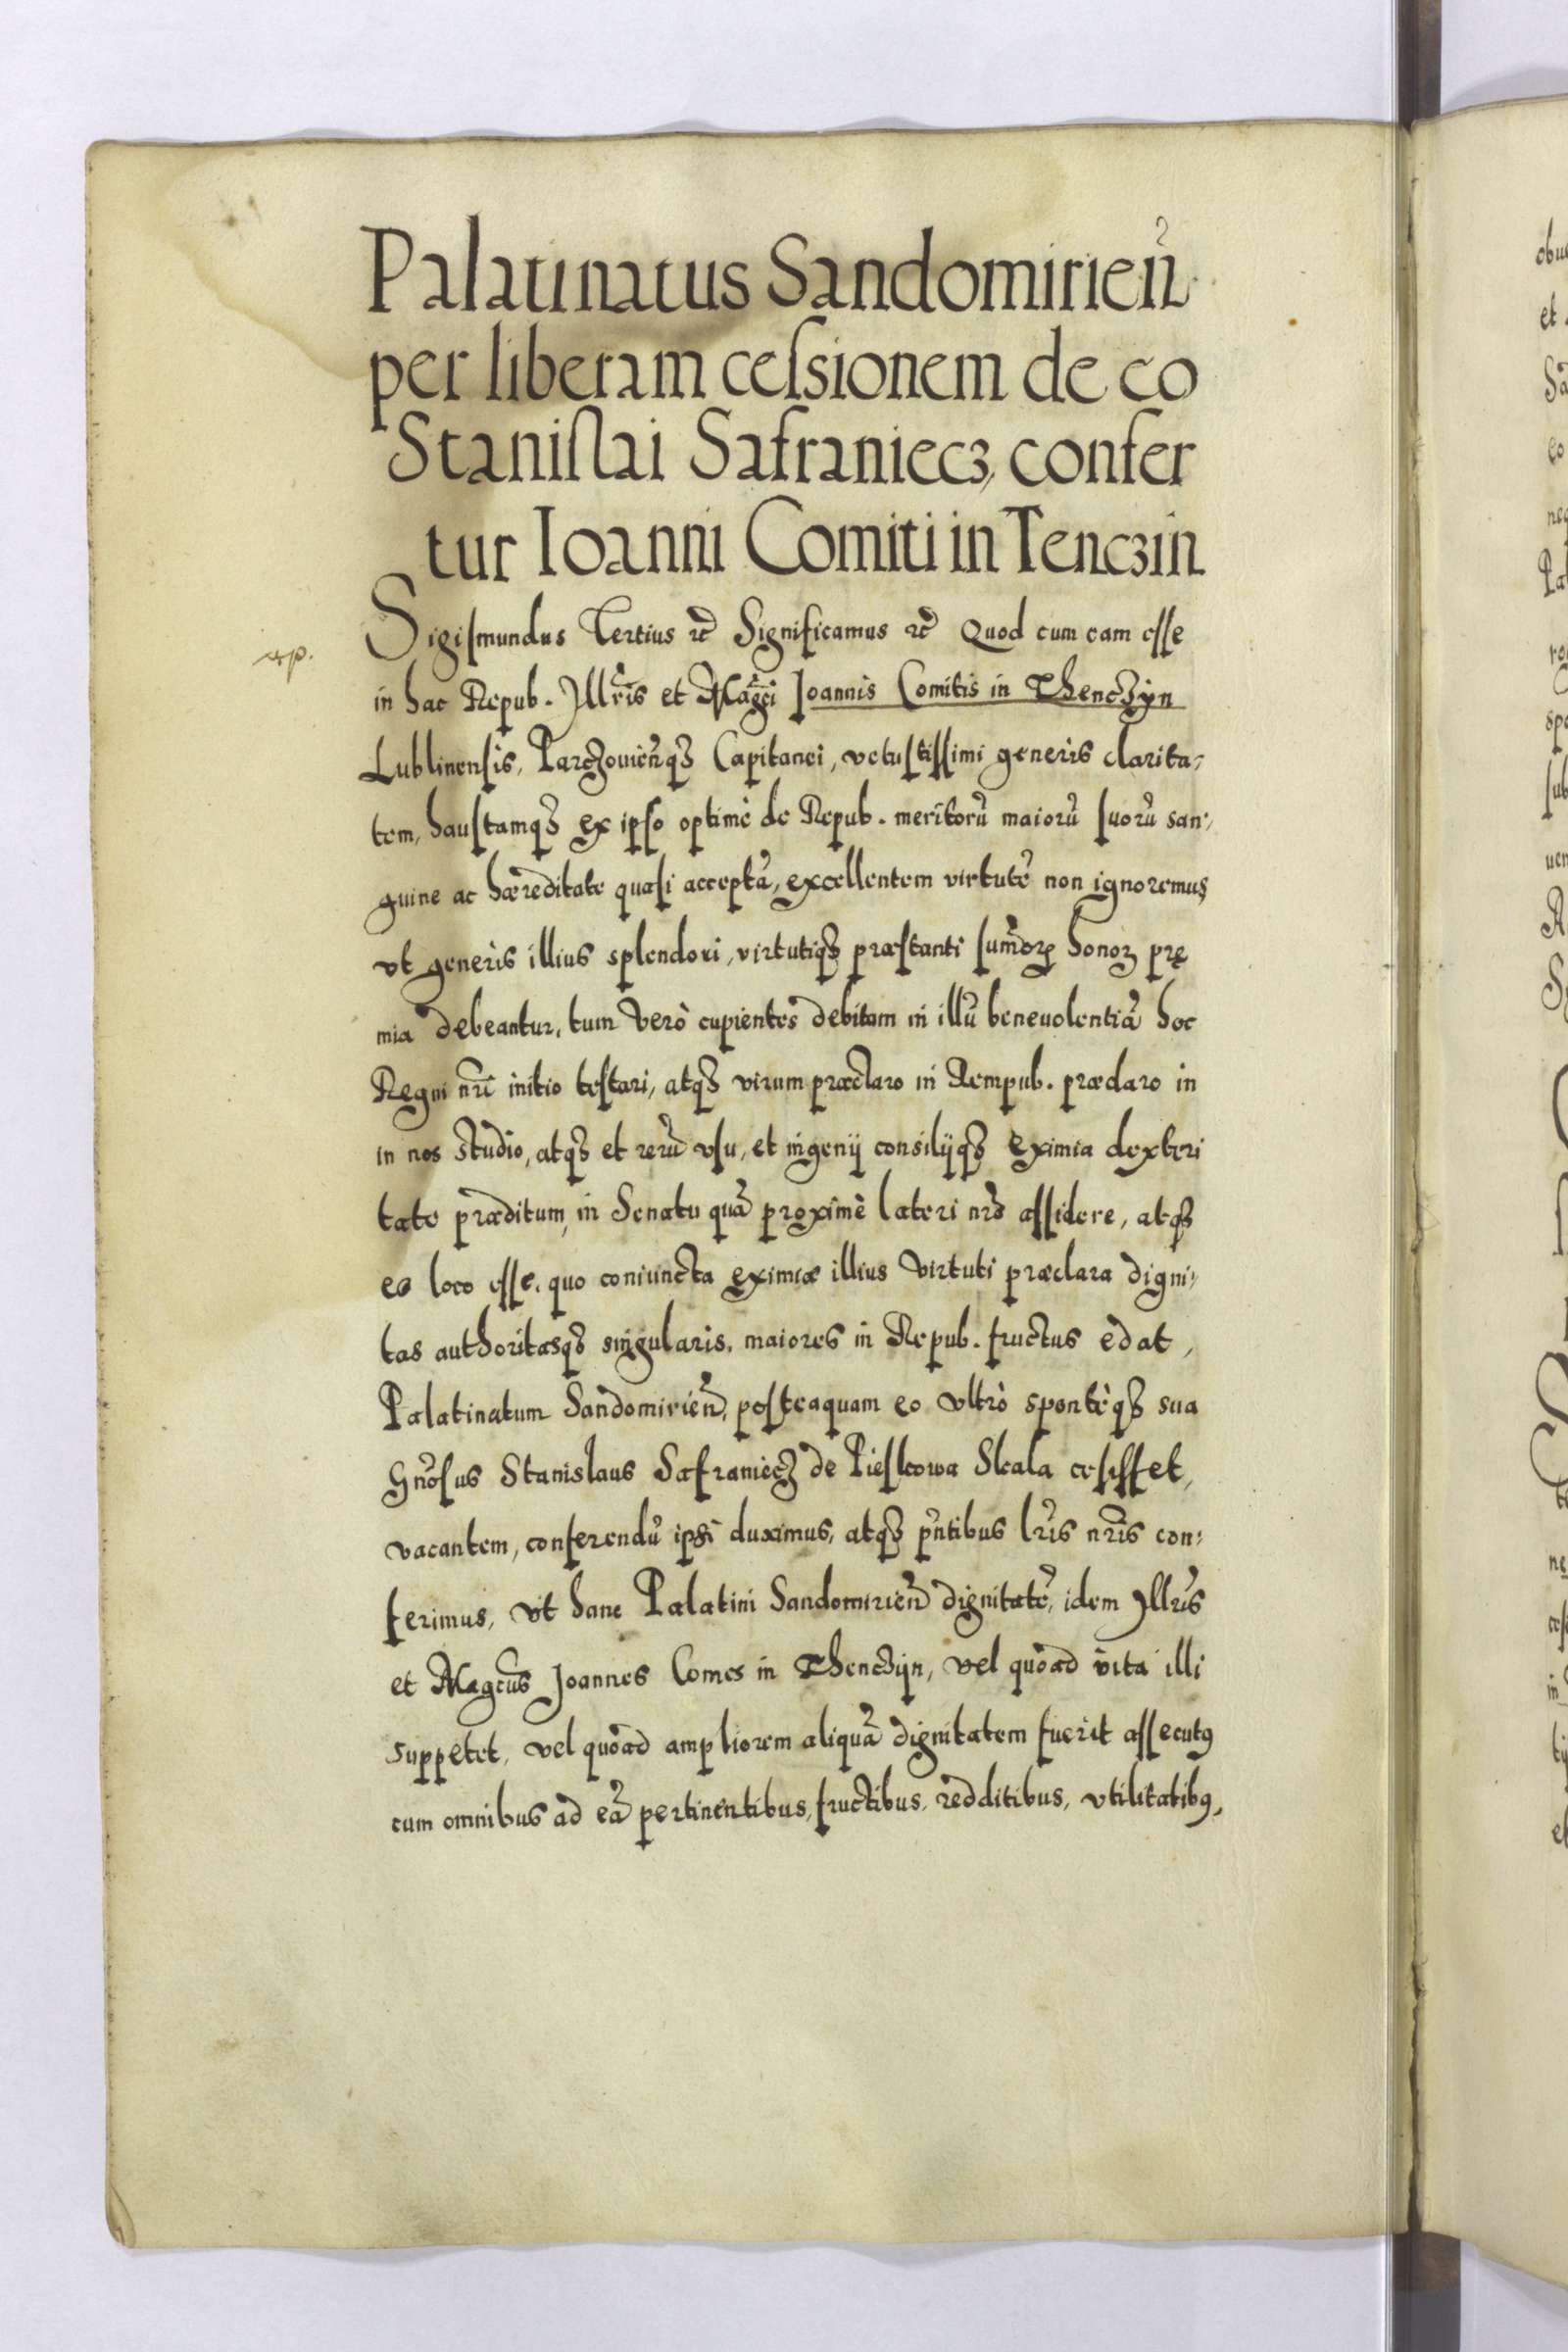 Palatinatus Sandomirien̄
per liberam ceſsionem de eo
Staniſlai Safraniecz, confer
tur Ioanni Comiti in Tenczin
Sigiſmundus Tertius etc̄ Significamus etc̄ Quod cum eam eſſe
in hac Repub. Jllr̃is et Mag̃ci Joannis Comitis in Thenczyn
Lublinenſis, Parczouien̄qꝫ Capitanei, vetuſtiſſimi generis clarita-
tem, hauſtamqꝫ ex ipſo optimè de Repub. meritorũ maiorũ ſuorũ san-
guine ac hæreditate quaſi acceptã, excellentem virtutẽ non ignoremus
vt generis illius splendori, virtutiqꝫ præſtanti ſum̃orꝝ honoꝝ prę
mia debeantur, tum verò cupientes debitam in illũ beneuolentiã hoc
Regni nr̃i initio teſtari, atqꝫ virum præclaro in Rempub. præclaro in
in nos studio, atqꝫ et rerũ vſu, et ingenij consilijqꝫ eximia dexteri
tate præditum, in Senatu quã proximè lateri nr̃o aſſidere, atqꝫ
eo loco eſſe, quo coniuncta eximiæ illius virtuti præclara digni-
tas authoritasqꝫ singularis, maiores in Repub. fructus edat,
Palatinatum Sandomirien̄, poſteaquam eo vltrò sponteqꝫ sua
Gñoſus Stanislaus Safraniecz de Pieſkowa Skala ceſſiſſet,
vacantem, conferendũ ipsi duximus, atqꝫ pñtibus lr̃is nr̃is con-
ferimus, vt hanc Palatini Sandomirien̄ dignitatẽ, idem Jllr̃is
et Magc̃us Joannes Comes in Thenczyn, vel quoad vita illi
suppetet, vel quoad ampliorem aliquã dignitatem fuerit aſſecutꝰ
cum omnibus ad eã pertinentibus, fructibus, redditibus, vtilitatibꝰ,